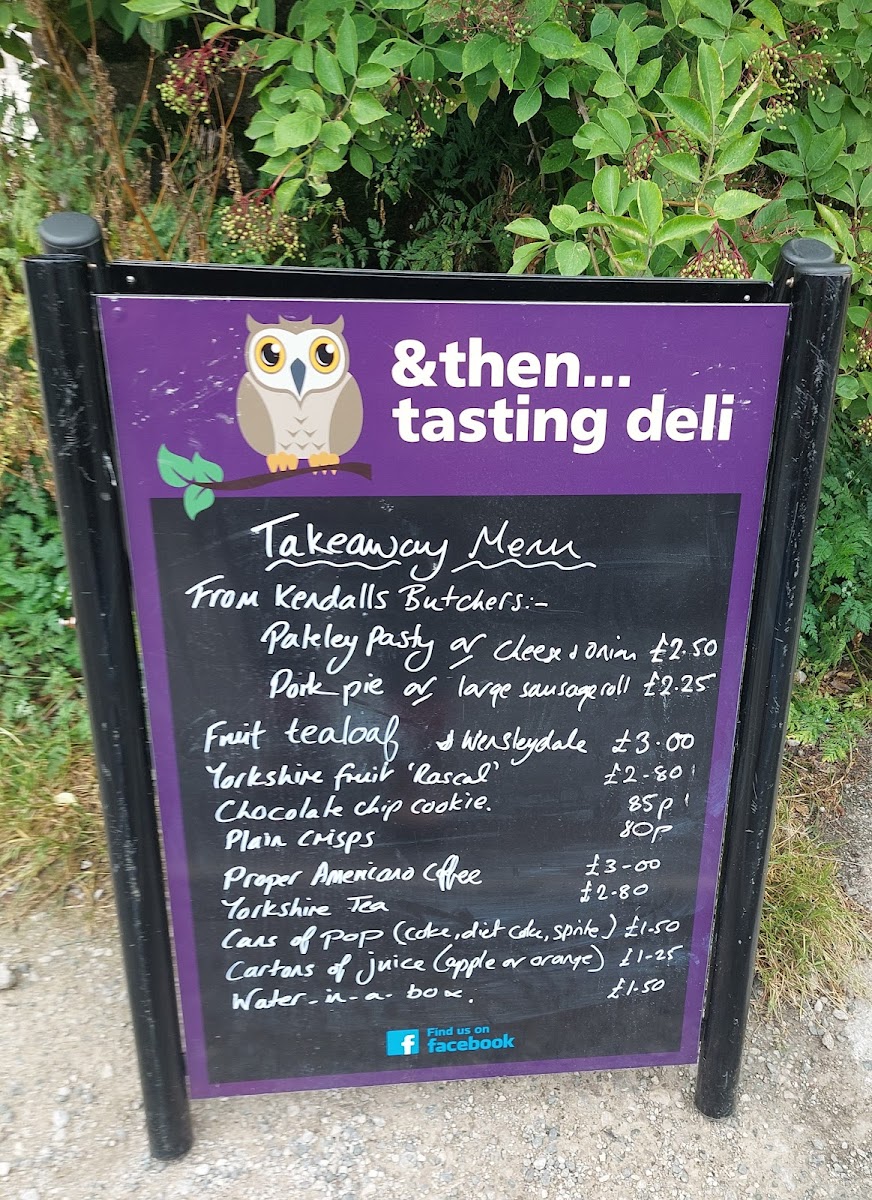 &then...
tasting deli
Takeaway Menu
From Kendalls Butchers:-
Pateley Pasty or cheese & onion £2.50
Pork pie or large sausage roll £2.25
Fruit tealoaf & Wensleydale £3.00
Yorkshire fruit 'Rascal' £2-80
Chocolate chip cookie. 85p
Plain crisps 80p
Proper Americano Coffee £3-00
Yorkshire Tea £2-80
Cans of pop (coke, diet coke, sprite) £1-50
Cartons of juice (apple or orange) £1-25
Water-in-a-box. £1.50
Find us on
facebook